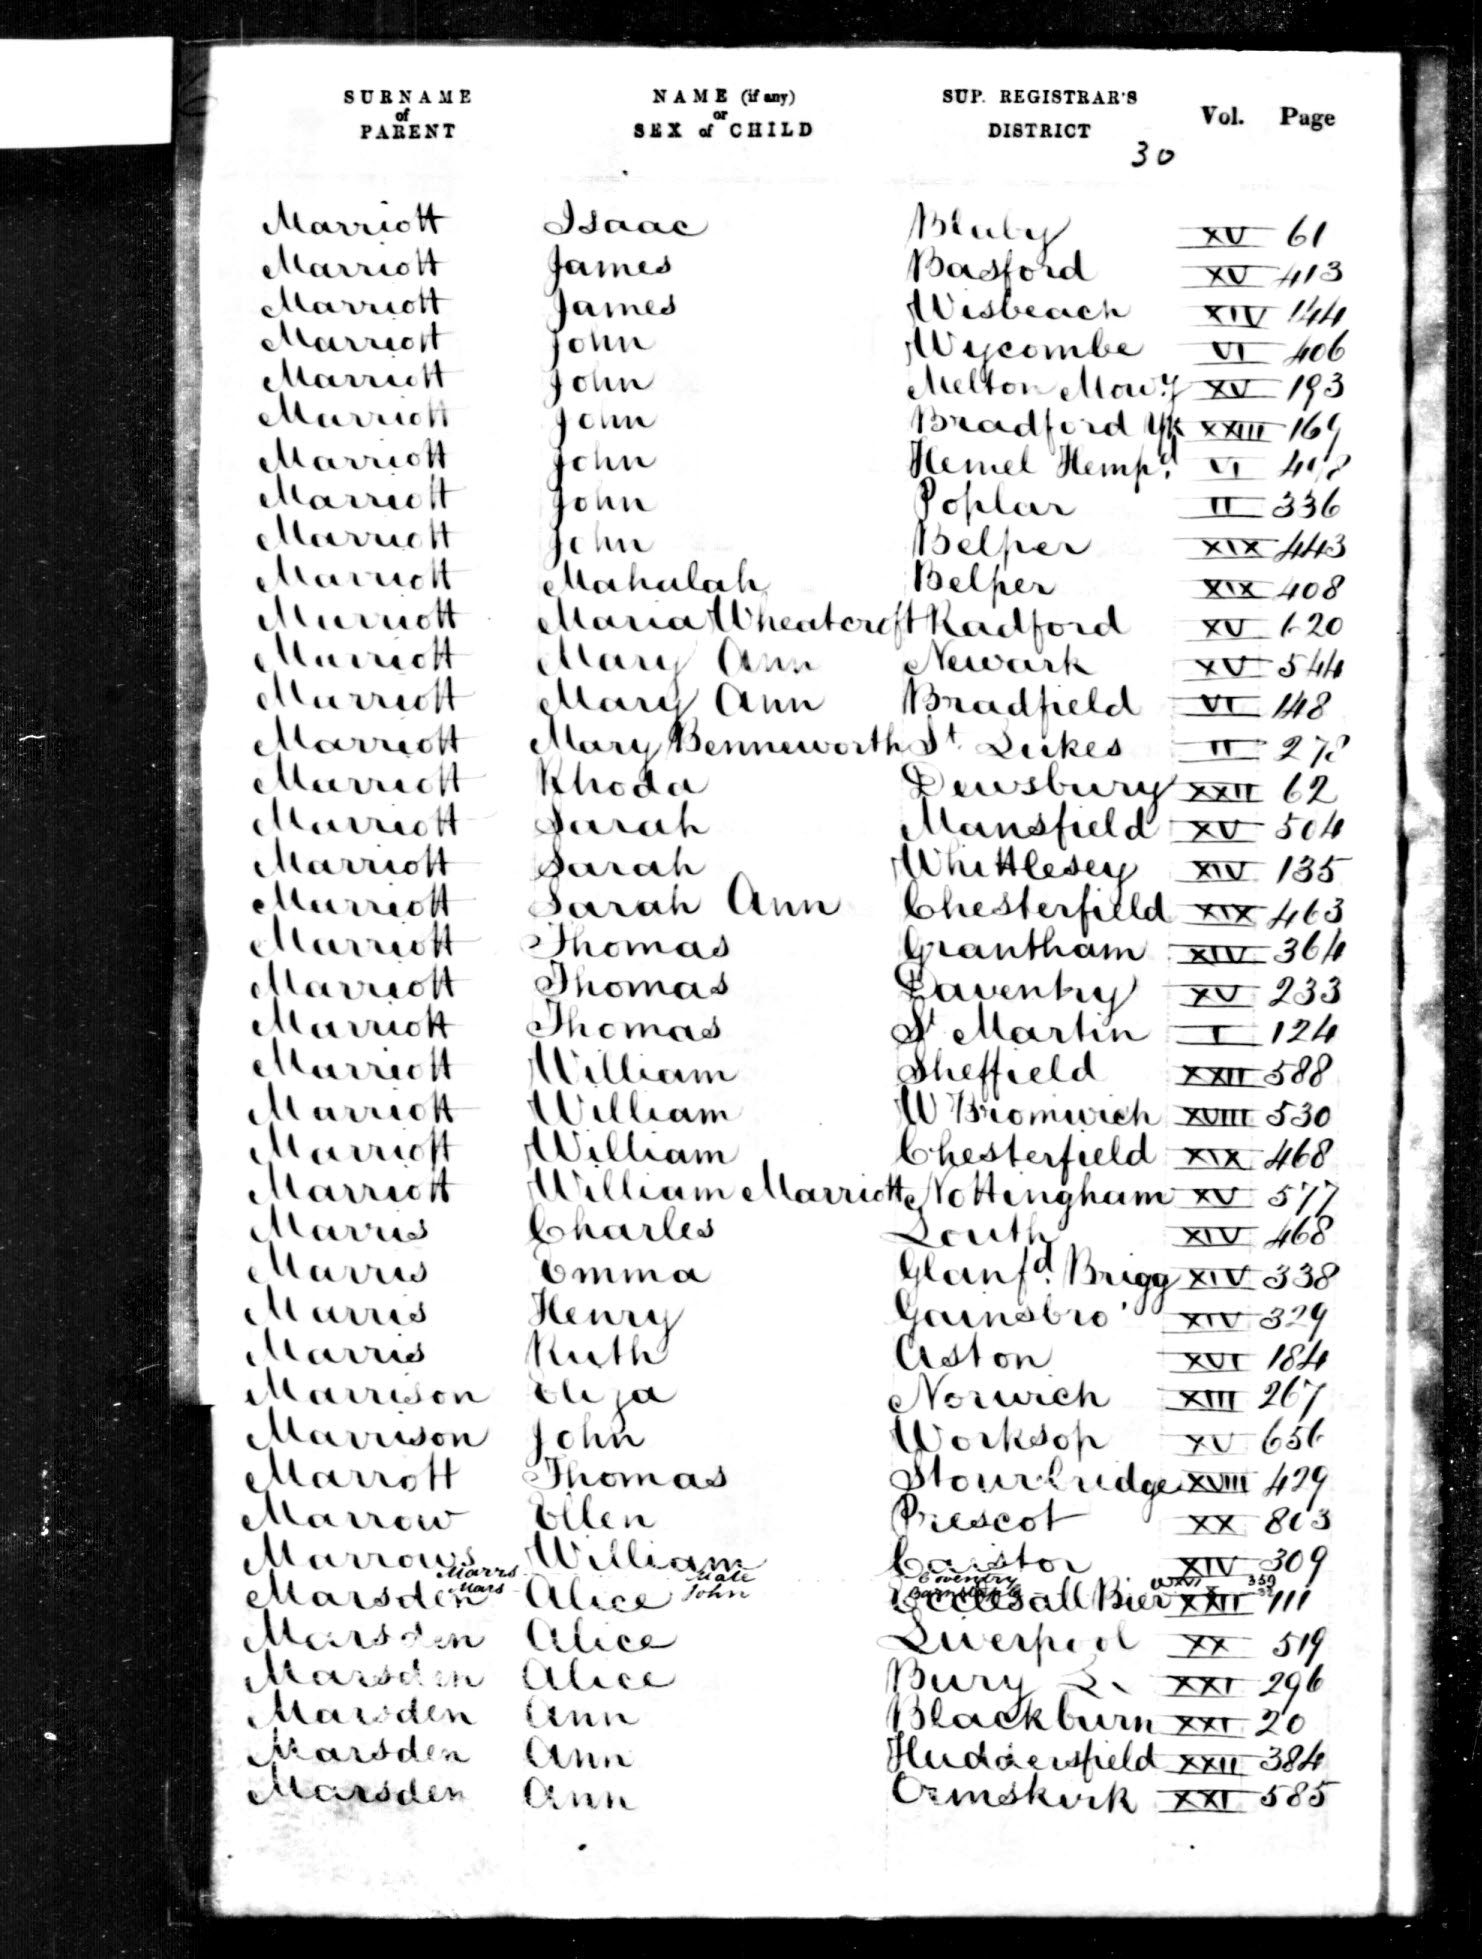 SURNAME of PARENT NAME (if any) or SEX of CHILD SUP. REGISTRAR'S DISTRICT Vol. Page
30
Marriott Isaac Blaby XV 61
Marriott James Basford XV 413
Marriott James Wisbeach XIV 144
Marriott John Wycombe VI 406
Marriott John Melton Mowy XV 193
Marriott John Bradford Yk XXIII 169
Marriott John Hemel Hempd VI
Marriott John Poplar II 336
Marriott John Belper XIX 443
Marriott Mahalah Belper XIX 408
Marriott Maria Wheatcroft Radford XV 620
Marriott Mary Ann Newark XV 544
Marriott Mary Ann Bradfield VI 148
Marriott Mary Benneworth St. Lukes II 278
Marriott Rhoda Dewsbury XXII 62
Marriott Sarah Mansfield XV 504
Marriott Sarah Whittlesey XIV 135
Marriott Sarah Ann Chesterfield XIX 463
Marriott Thomas Grantham XIV 364
Marriott Thomas Daventry XV 233
Marriott Thomas St Martin I 124
Marriott William Sheffield XXII 588
Marriott William W Bromwich XVIII 530
Marriott William Chesterfield XIX 468
Marriott William Marriott Nottingham XV 577
Marris Charles Louth XIV 468
Marris Emma Glanfd. Brigg XIV 338
Marris Henry Gainsbro' XIV 329
Marris Ruth Aston XVI 184
Marrison Eliza Norwich XIII 267
Marrison John Worksop XV 656
Marrott Thomas Stourbridge XVIII 429
Marrow Ellen Prescot XX 803
Marrows William Caistor XIV 309
Marrs Male Coventry XVI
Mars John Barnstaple X
Marsden Alice Ecclesall Bier XXII 111
Marsden Alice Liverpool XX 519
Marsden Alice Bury L. XXI 296
Marsden Ann Blackburn XXI 20
Marsden Ann Huddersfield XXII 384
Marsden Ann Ormskirk XXI 585